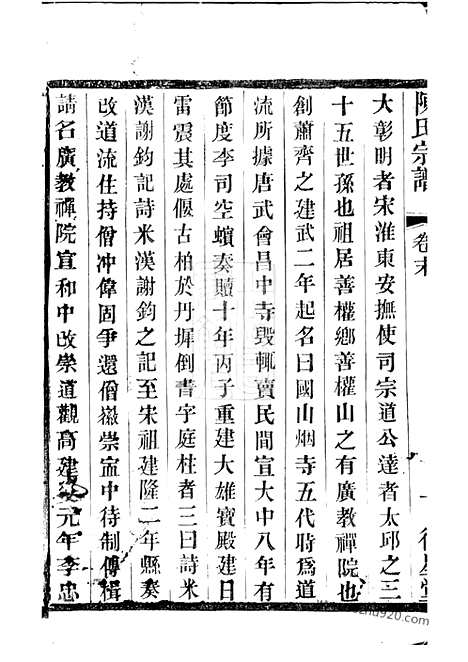 陳氏宗譜
卷末
大彰明者宋淮東安撫使司宗道公達者太邱之三
十五世孫也祖居善權鄉善權山之有廣教禪院也
創蕭齊之建武二年起名曰國山烟寺五代時爲道
流所據唐武會昌中寺毀輒賣民間宣大中八年有
節度李司空蠙奏贖十年丙子重建大雄寶殿建日
雷震其處偃古柏於丹墀倒書字庭柱者三曰詩米
漢謝鈞記詩米漢謝鈞之記至宋祖建隆二年縣奏
改道流住持僧冲偉固爭還僧嶽崇寍中待制傅楫
請名廣教禪院宣和中改崇道觀高建炎元年李忠